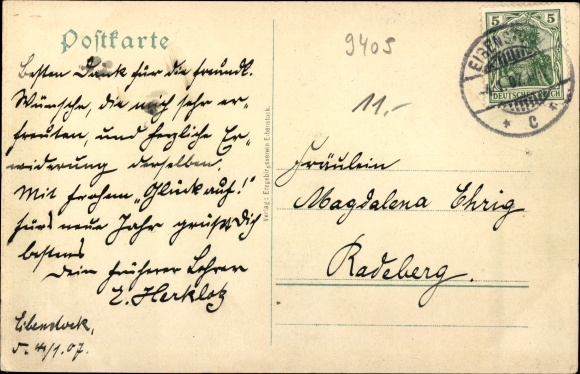 Postkarte
Besten Dank für die freundl.
Wünsche, die mich sehr er-
freuten, und herzliche Er-
widerung derselben.
Mit frohem „Glück auf!"
fürs neue Jahr grüßt Dich
bestens
Dein früherer Lehrer
Herklotz
Eibenstock,
1.07.
Verlag: Erzgebirgsverein Eibenstock.
9405
11.-
5 5
DEUTSCHES REICH
EIBENSTOCK
* C *
Fräulein
Magdalena Ehrig
Radeberg.